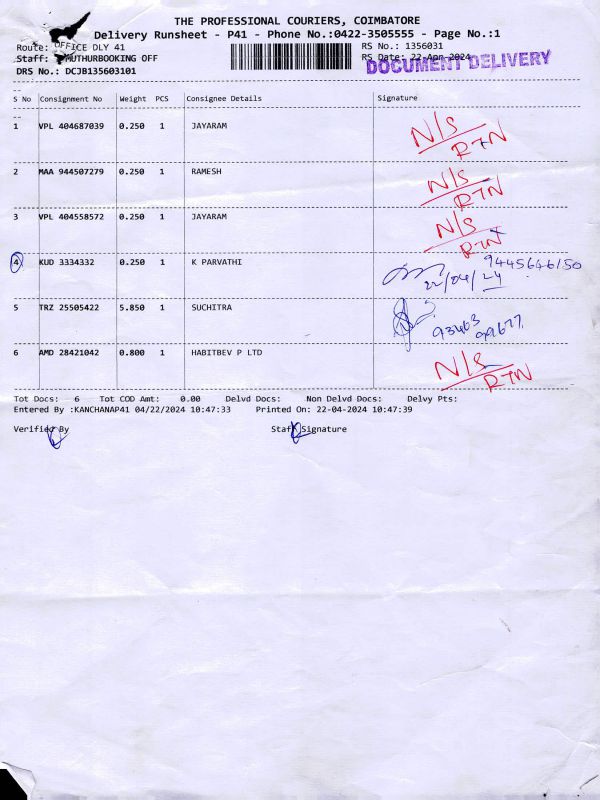 THE PROFESSIONAL COURIERS, COIMBATORE
Delivery Runsheet - P41 - Phone No.:0422-3505555 - Page No.:1
Route: OFFICE DLY 41
RS No.: 1356031
Staff: MUTHURBOOKING OFF
RS Date: 22-Apr-2024
DOCUMENT DELIVERY
DRS No.: DCJB135603101
S No Consignment No Weight PCS Consignee Details Signature
1 VPL 404687039 0.250 1 JAYARAM N/S
RTN
2 MAA 944507279 0.250 1 RAMESH N/S
RTN
3 VPL 404558572 0.250 1 JAYARAM N/S
RTN
4 KUD 3334332 0.250 1 K PARVATHI 9445646150
22/04/24
5 TRZ 25505422 5.850 1 SUCHITRA
93463
99677
6 AMD 28421042 0.800 1 HABITBEV P LTD N/S
RTN
Tot Docs: 6 Tot COD Amt: 0.00 Delvd Docs: Non Delvd Docs: Delvy Pts:
Entered By :KANCHANAP41 04/22/2024 10:47:33 Printed On: 22-04-2024 10:47:39
Verified By Staff Signature